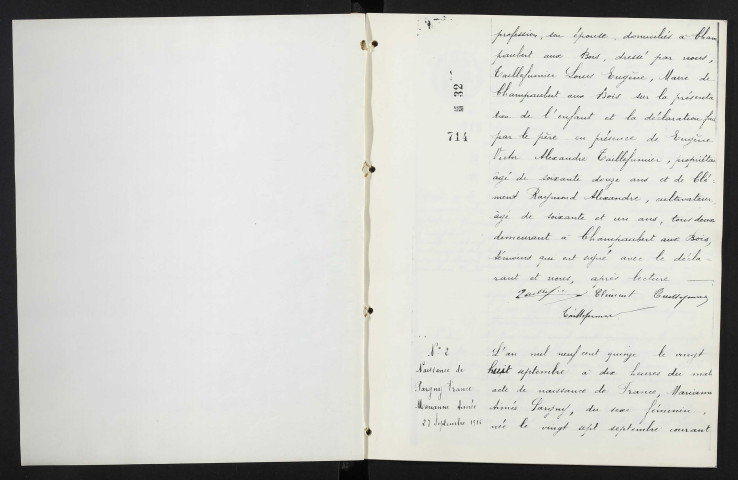 profession, son épouse, domiciliés à Cham
paubert aux Bois, dressé par nous,
Taillefumier Louis Eugène, Maire de
Champaubert aux Bois sur la présenta
tion de l'enfant et la déclaration fai
par le père en présence de Eugène
Victor Alexandre Taillefumier, propriétai
âgé de soixante douze ans et de Clé-
ment Raymond Alexandre, cultivateur
âgé de soixante et un ans, tous deux
demeurant à Champaubert aux Bois,
témoins qui ont signé avec le décla-
rant et nous, après lecture
Clément Taillefumier
Taillefumier
32
714
N° 2
Naissance de
Sargny France
Marianne Aimée
27 Septembre 1915
L'an mil neuf cent quinze le vingt
huit septembre à dix heures du matin
acte de naissance de France, Marianne
Aimée Sargny, du sexe féminin,
née le vingt sept septembre courant